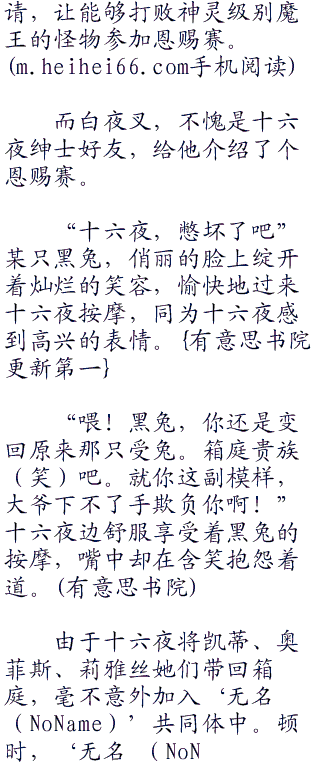 请，让能够打败神灵级别魔
王的怪物参加恩赐赛。
(m.heihei66.com手机阅读)
而白夜叉，不愧是十六
夜绅士好友，给他介绍了个
恩赐赛。
“十六夜，憋坏了吧”
某只黑兔，俏丽的脸上绽开
着灿烂的笑容，愉快地过来
十六夜按摩，同为十六夜感
到高兴的表情。{有意思书院
更新第一}
“喂！黑兔，你还是变
回原来那只受兔。箱庭贵族
（笑）吧。就你这副模样，
大爷下不了手欺负你啊！”
十六夜边舒服享受着黑兔的
按摩，嘴中却在含笑抱怨着
道。(有意思书院)
由于十六夜将凯蒂、奥
菲斯、莉雅丝她们带回箱
庭，毫不意外加入‘无名
（NoName）’共同体中。顿
时，‘无名 （NoN